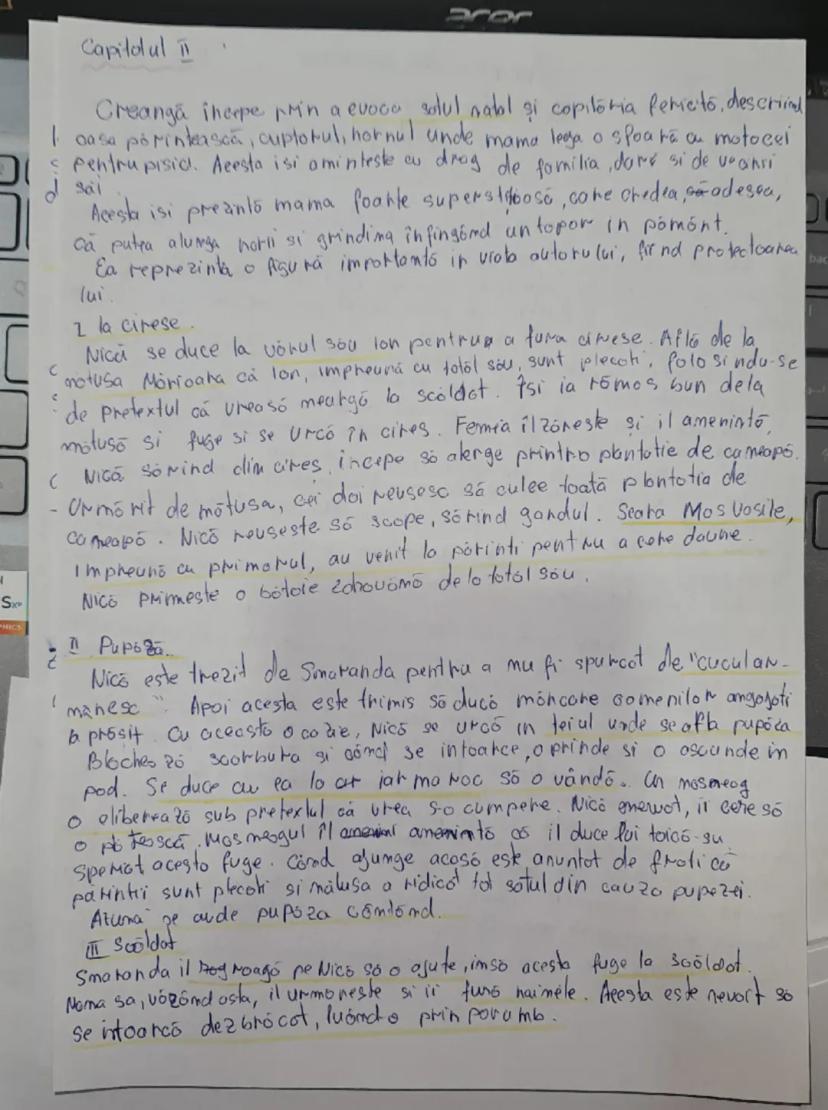 acer
Capitolul II
Creangă începe prin a evoca satul natal și copilăria fericită, descriind
casa părintească, cuptorul, hornul unde mama lega o sfoară cu motocei
pentru pisici. Acesta isi aminteste cu drag de familia, dar si de
săi.
Acesta isi prezintă mama foarte superstițioasă, care credea, adesea,
că putea alunga norii si grindina înfingând un topor in pământ.
Ea reprezinta o figură importantă in viata autorului, fiind protectoarea
lui.
I la cirese.
Nică se duce la vărul său Ion pentru a fura cirese. Află de la
mătusa Mărioara că Ion, împreună cu tatăl său, sunt plecati, folosindu-se
de pretextul că vrea să meargă la scăldat. Își ia rămas bun de la
mătusă si fuge si se urcă în cires. Femeia îl zăreste și il amenintă,
Nică sărind din cires, începe să alerge printro plantatie de canepă.
Urmărit de mătusa, cei doi reusesc să culce toată plantatia de
canepă. Nică reuseste să scape, sărind gardul. Seara Mos Vasile,
împreună cu primarul, au venit la părinti pentru a cere daune.
Nică primeste o bătaie zdravănă de la tatăl său.
II Pupăza
Nică este trezit de Smaranda pentru a nu fi spurcat de "cucul ar-
mănesc". Apoi acesta este trimis să ducă mâncare oamenilor angajati
la prăsit. Cu aceasta ocazie, Nică se urcă in teiul unde se afla pupăza
Blochează scorbura și când se intoarce, o prinde si o ascunde in
pod. Se duce cu ea la iarmaroc să o vândă. Un mosneag
o eliberează sub pretextul că vrea s-o cumpere. Nică enervat, îi cere să
o plătească. Mosneagul îl amenintă că il duce lui taică-su.
Speriat acesta fuge. Când ajunge acasă este anuntat de frati că
parintii sunt plecati si mătusa a ridicat tot satul din cauza pupezei.
Atunci se aude pupăza cântând.
III Scăldat
Smaranda îl roagă pe Nică să o ajute, insă acesta fuge la scăldat.
Mama sa, văzând asta, il urmăreste si ii fură hainele. Acesta este nevoit să
se intoarcă dezbrăcat, luând-o prin porumb.